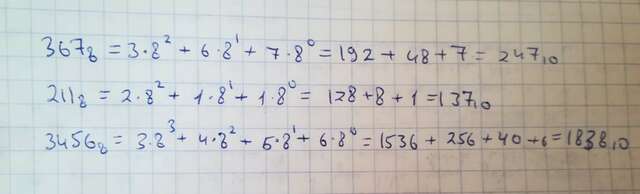 367₈ = 3·8² + 6·8¹ + 7·8⁰ = 192 + 48 + 7 = 247₁₀
211₈ = 2·8² + 1·8¹ + 1·8⁰ = 128 + 8 + 1 = 137₁₀
3456₈ = 3·8³ + 4·8² + 5·8¹ + 6·8⁰ = 1536 + 256 + 40 + 6 = 1838₁₀